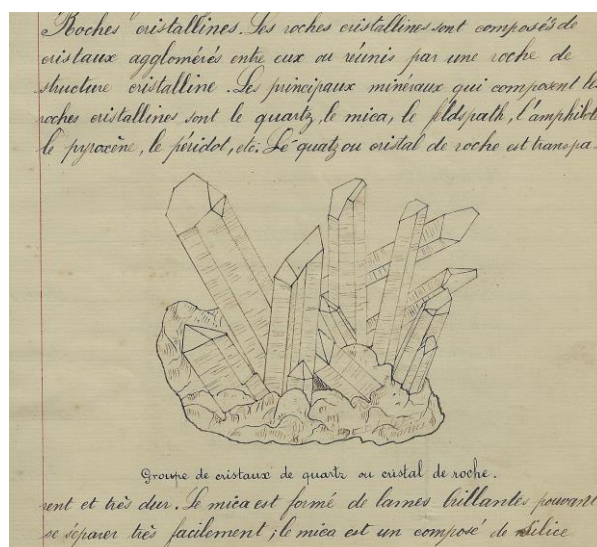 Roches cristallines. Les roches cristallines sont composés de
cristaux agglomérés entre eux ou réunis par une roche de
structure cristalline. Les principaux minéraux qui composent les
roches cristallines sont le quartz, le mica, le feldspath, l'amphibol
le pyroxène, le péridot, etc. Le quatz ou cristal de roche est transpa-
Groupe de cristaux de quartz ou cristal de roche.
rent et très dur. Le mica est formé de lames brillantes pouvant
se séparer très facilement; le mica est un composé de silice